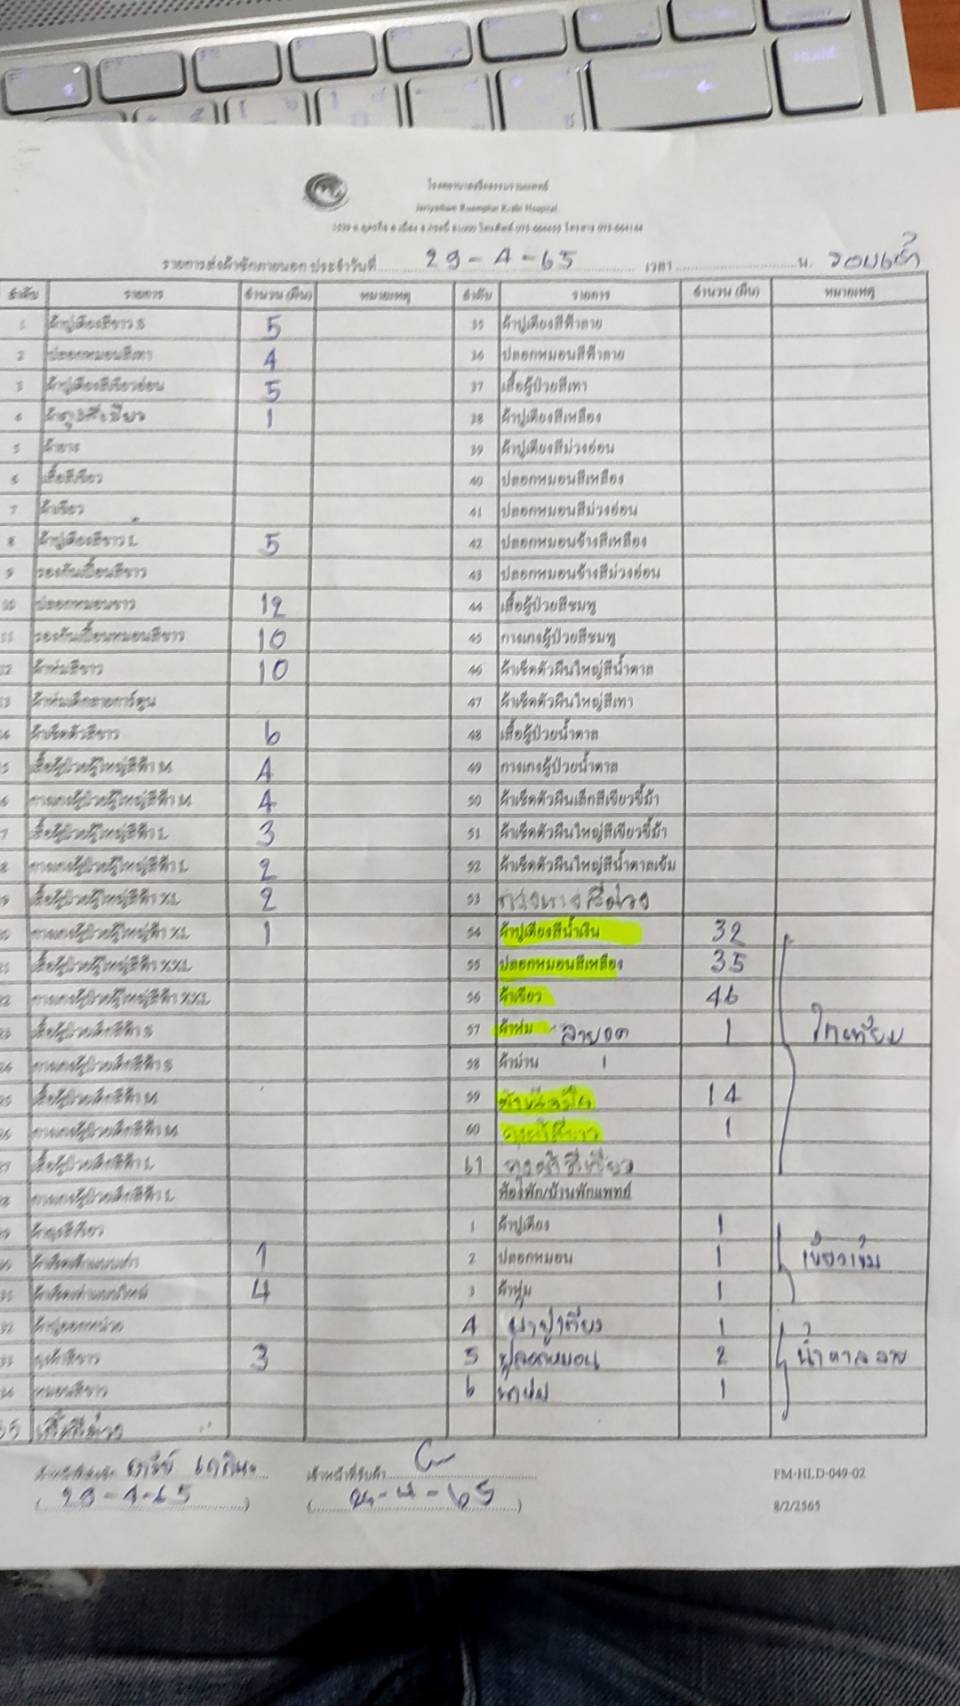 โรงพยาบาลจริยธรรมรวมแพทย์
Jariyatham Ruamphat Krabi Hospital
รายการส่งผ้าซักภายนอก ประจำวันที่ 29-4-65 เวลา น. รอบเช้า
ลำดับ รายการ จำนวน (ผืน) หมายเหตุ ลำดับ รายการ จำนวน (ผืน) หมายเหตุ
1 ผ้าปูเตียงสีขาว S 5 35 ผ้าปูเตียงสีฟ้าลาย
2 ปลอกหมอนสีเทา 4 36 ปลอกหมอนสีฟ้าลาย
3 ผ้าปูเตียงสีเขียวอ่อน 5 37 เสื้อผู้ป่วยสีเทา
4 ผ้าถุงสีเขียว 1 38 ผ้าปูเตียงสีเหลือง
5 ผ้ายาง 39 ผ้าปูเตียงสีม่วงอ่อน
6 เสื้อสีเขียว 40 ปลอกหมอนสีเหลือง
7 ผ้าเขียว 41 ปลอกหมอนสีม่วงอ่อน
8 ผ้าปูเตียงสีขาว L 5 42 ปลอกหมอนข้างสีเหลือง
9 รองกันเปื้อนสีขาว 43 ปลอกหมอนข้างสีม่วงอ่อน
10 ปลอกหมอนขาว 12 44 เสื้อผู้ป่วยสีชมพู
11 รองกันเปื้อนหมอนสีขาว 10 45 กางเกงผู้ป่วยสีชมพู
12 ผ้าห่มสีขาว 10 46 ผ้าเช็ดตัวผืนใหญ่สีน้ำตาล
13 ผ้าห่มเด็กลายการ์ตูน 47 ผ้าเช็ดตัวผืนใหญ่สีเทา
14 ผ้าเช็ดตัวสีขาว 6 48 เสื้อผู้ป่วยน้ำตาล
15 เสื้อผู้ป่วยผู้ใหญ่สีฟ้า M 4 49 กางเกงผู้ป่วยน้ำตาล
16 กางเกงผู้ป่วยผู้ใหญ่สีฟ้า M 4 50 ผ้าเช็ดตัวผืนเล็กสีเขียวขี้ม้า
17 เสื้อผู้ป่วยผู้ใหญ่สีฟ้า L 3 51 ผ้าเช็ดตัวผืนใหญ่สีเขียวขี้ม้า
18 กางเกงผู้ป่วยผู้ใหญ่สีฟ้า L 2 52 ผ้าเช็ดตัวผืนใหญ่สีน้ำตาลเข้ม
19 เสื้อผู้ป่วยผู้ใหญ่สีฟ้า XL 2 53
20 กางเกงผู้ป่วยผู้ใหญ่สีฟ้า XL 1 54 ผ้าปูเตียงสีน้ำเงิน 32
21 เสื้อผู้ป่วยผู้ใหญ่สีฟ้า XXL 55 ปลอกหมอนสีเหลือง 35
22 กางเกงผู้ป่วยผู้ใหญ่สีฟ้า XXL 56 ผ้าเขียว 46
23 เสื้อผู้ป่วยเด็กสีฟ้า S 57 ผ้าห่ม 1 ไตเทียม
24 กางเกงผู้ป่วยเด็กสีฟ้า S 58 ผ้าม่าน
25 เสื้อผู้ป่วยเด็กสีฟ้า M 59 14
26 กางเกงผู้ป่วยเด็กสีฟ้า M 60 ถุงผ้าสีขาว 1
27 เสื้อผู้ป่วยเด็กสีฟ้า L 61 ถุงผ้าสีเขียว
28 กางเกงผู้ป่วยเด็กสีฟ้า L ห้องพัก/บ้านพักแพทย์
29 1 ผ้าปูเตียง 1
30 1 2 ปลอกหมอน 1 เขียวเข้ม
31 4 3 ผ้าห่ม 1
32 4 ผ้าปูเตียง 1
33 ถุงผ้าสีขาว 3 5 ปลอกหมอน 2 น้ำตาลลาย
34 6 ผ้าห่ม 1
35
เจ้าหน้าที่รับผ้า
(29-4-65) (29-4-65)
FM-HLD-049-02
8/2/2565